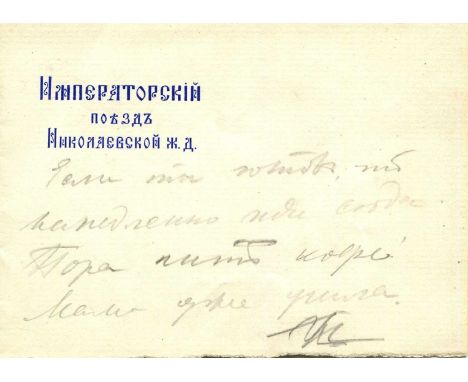 Императорскій
поѣздъ
Николаевской ж. д.
Если ты готовъ, то
немедленно иди сюда.
Пора пить кофе
Мама уже ушла.